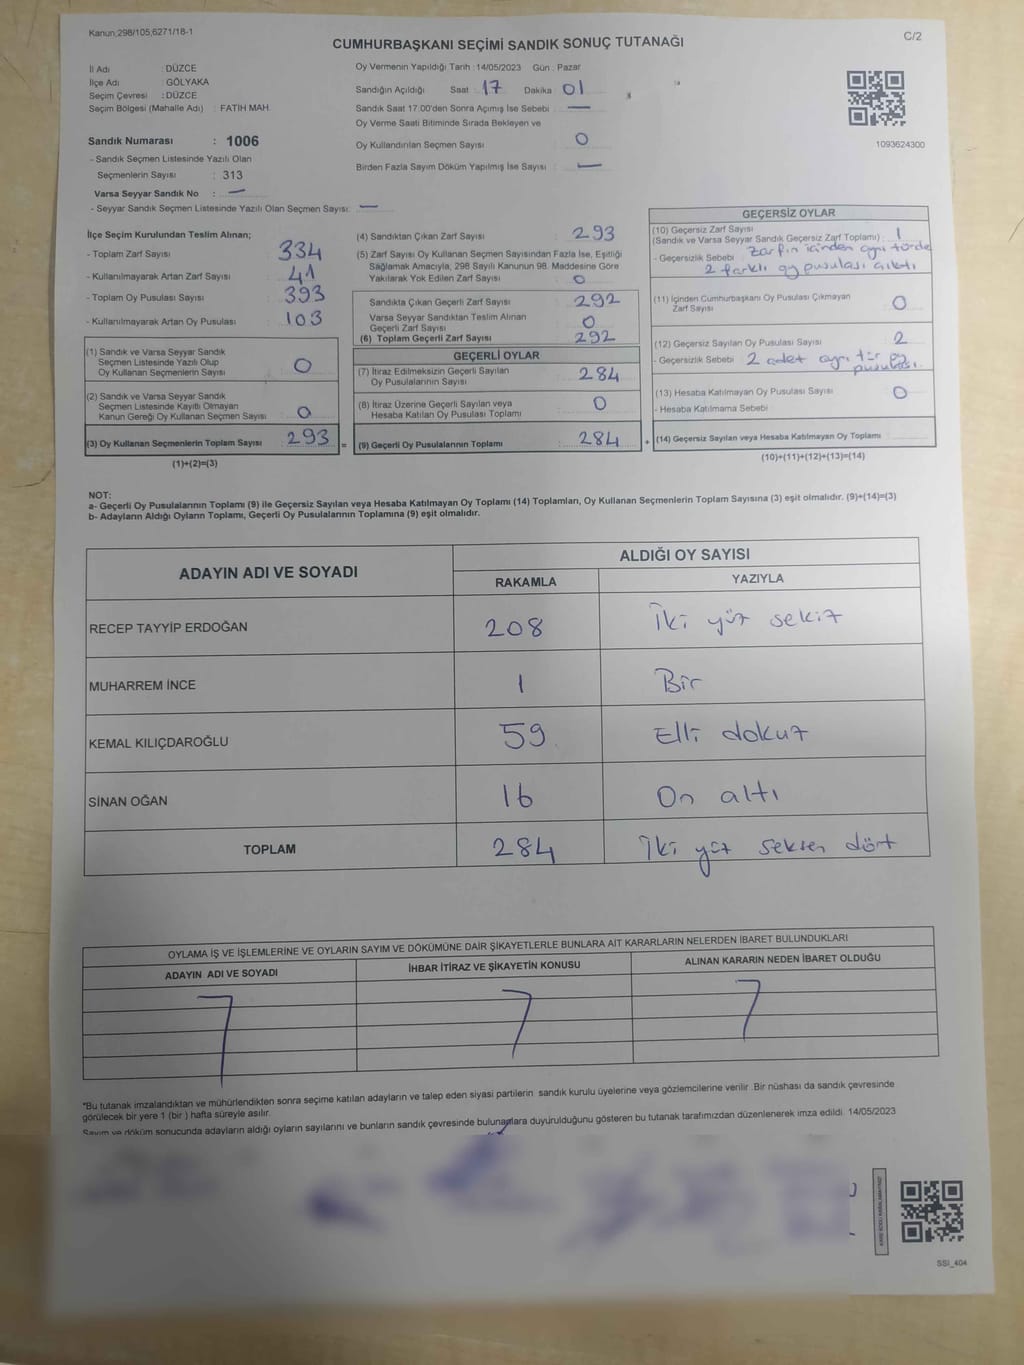 Kanun,298/105,6271/18-1
C/2
CUMHURBAŞKANI SEÇİMİ SANDIK SONUÇ TUTANAĞI
İl Adı : DÜZCE
İlçe Adı : GÖLYAKA
Seçim Çevresi : DÜZCE
Seçim Bölgesi (Mahalle Adı) : FATİH MAH.
Sandık Numarası : 1006
- Sandık Seçmen Listesinde Yazılı Olan
Seçmenlerin Sayısı : 313
Varsa Seyyar Sandık No : —
- Seyyar Sandık Seçmen Listesinde Yazılı Olan Seçmen Sayısı: —
Oy Vermenin Yapıldığı Tarih : 14/05/2023 Gün : Pazar
Sandığın Açıldığı Saat 17 Dakika 01
Sandık Saat 17:00'den Sonra Açımış İse Sebebi —
Oy Verme Saati Bitiminde Sırada Bekleyen ve
Oy Kullandırılan Seçmen Sayısı : 0
Birden Fazla Sayım Döküm Yapılmış İse Sayısı : —
1093624300
İlçe Seçim Kurulundan Teslim Alınan;
- Toplam Zarf Sayısı : 334
- Kullanılmayarak Artan Zarf Sayısı : 41
- Toplam Oy Pusulası Sayısı : 393
- Kullanılmayarak Artan Oy Pusulası : 103
(1) Sandık ve Varsa Seyyar Sandık
Seçmen Listesinde Yazılı Olup
Oy Kullanan Seçmenlerin Sayısı : 0
(2) Sandık ve Varsa Seyyar Sandık
Seçmen Listesinde Kayıtlı Olmayan
Kanun Gereği Oy Kullanan Seçmen Sayısı : 0
(3) Oy Kullanan Seçmenlerin Toplam Sayısı : 293 =
(1)+(2)=(3)
(4) Sandıktan Çıkan Zarf Sayısı : 293
(5) Zarf Sayısı Oy Kullanan Seçmen Sayısından Fazla İse, Eşitliği
Sağlamak Amacıyla, 298 Sayılı Kanunun 98. Maddesine Göre
Yakılarak Yok Edilen Zarf Sayısı : 0
Sandıkta Çıkan Geçerli Zarf Sayısı : 292
Varsa Seyyar Sandıktan Teslim Alınan
Geçerli Zarf Sayısı : 0
(6) Toplam Geçerli Zarf Sayısı : 292
GEÇERLİ OYLAR
(7) İtiraz Edilmeksizin Geçerli Sayılan
Oy Pusulalarının Sayısı : 284
(8) İtiraz Üzerine Geçerli Sayılan veya
Hesaba Katılan Oy Pusulası Toplamı : 0
(9) Geçerli Oy Pusulalarının Toplamı : 284 +
GEÇERSİZ OYLAR
(10) Geçersiz Zarf Sayısı
(Sandık ve Varsa Seyyar Sandık Geçersiz Zarf Toplamı) : 1
- Geçersizlik Sebebi : Zarfın içinden aynı türde
2 farklı oy pusulası çıktı
(11) İçinden Cumhurbaşkanı Oy Pusulası Çıkmayan
Zarf Sayısı : 0
(12) Geçersiz Sayılan Oy Pusulası Sayısı : 2
- Geçersizlik Sebebi 2 adet ayrı tür oy
pusulası.
(13) Hesaba Katılmayan Oy Pusulası Sayısı : 0
- Hesaba Katılmama Sebebi
(14) Geçersiz Sayılan veya Hesaba Katılmayan Oy Toplamı
(10)+(11)+(12)+(13)=(14)
NOT:
a- Geçerli Oy Pusulalarının Toplamı (9) ile Geçersiz Sayılan veya Hesaba Katılmayan Oy Toplamı (14) Toplamları, Oy Kullanan Seçmenlerin Toplam Sayısına (3) eşit olmalıdır. (9)+(14)=(3)
b- Adayların Aldığı Oyların Toplamı, Geçerli Oy Pusulalarının Toplamına (9) eşit olmalıdır.
ADAYIN ADI VE SOYADI
ALDIĞI OY SAYISI
RAKAMLA YAZIYLA
RECEP TAYYİP ERDOĞAN 208 İki yüz sekiz
MUHARREM İNCE 1 Bir
KEMAL KILIÇDAROĞLU 59 Elli dokuz
SİNAN OĞAN 16 On altı
TOPLAM 284 İki yüz seksen dört
OYLAMA İŞ VE İŞLEMLERİNE VE OYLARIN SAYIM VE DÖKÜMÜNE DAİR ŞİKAYETLERLE BUNLARA AİT KARARLARIN NELERDEN İBARET BULUNDUKLARI
ADAYIN ADI VE SOYADI İHBAR İTİRAZ VE ŞİKAYETİN KONUSU ALINAN KARARIN NEDEN İBARET OLDUĞU
*Bu tutanak imzalandıktan ve mühürlendikten sonra seçime katılan adayların ve talep eden siyasi partilerin sandık kurulu üyelerine veya gözlemcilerine verilir .Bir nüshası da sandık çevresinde
görülecek bir yere 1 (bir ) hafta süreyle asılır.
Sayım ve döküm sonucunda adayların aldığı oyların sayılarını ve bunların sandık çevresinde bulunanlara duyurulduğunu gösteren bu tutanak tarafımızdan düzenlenerek imza edildi. 14/05/2023
SSI_404